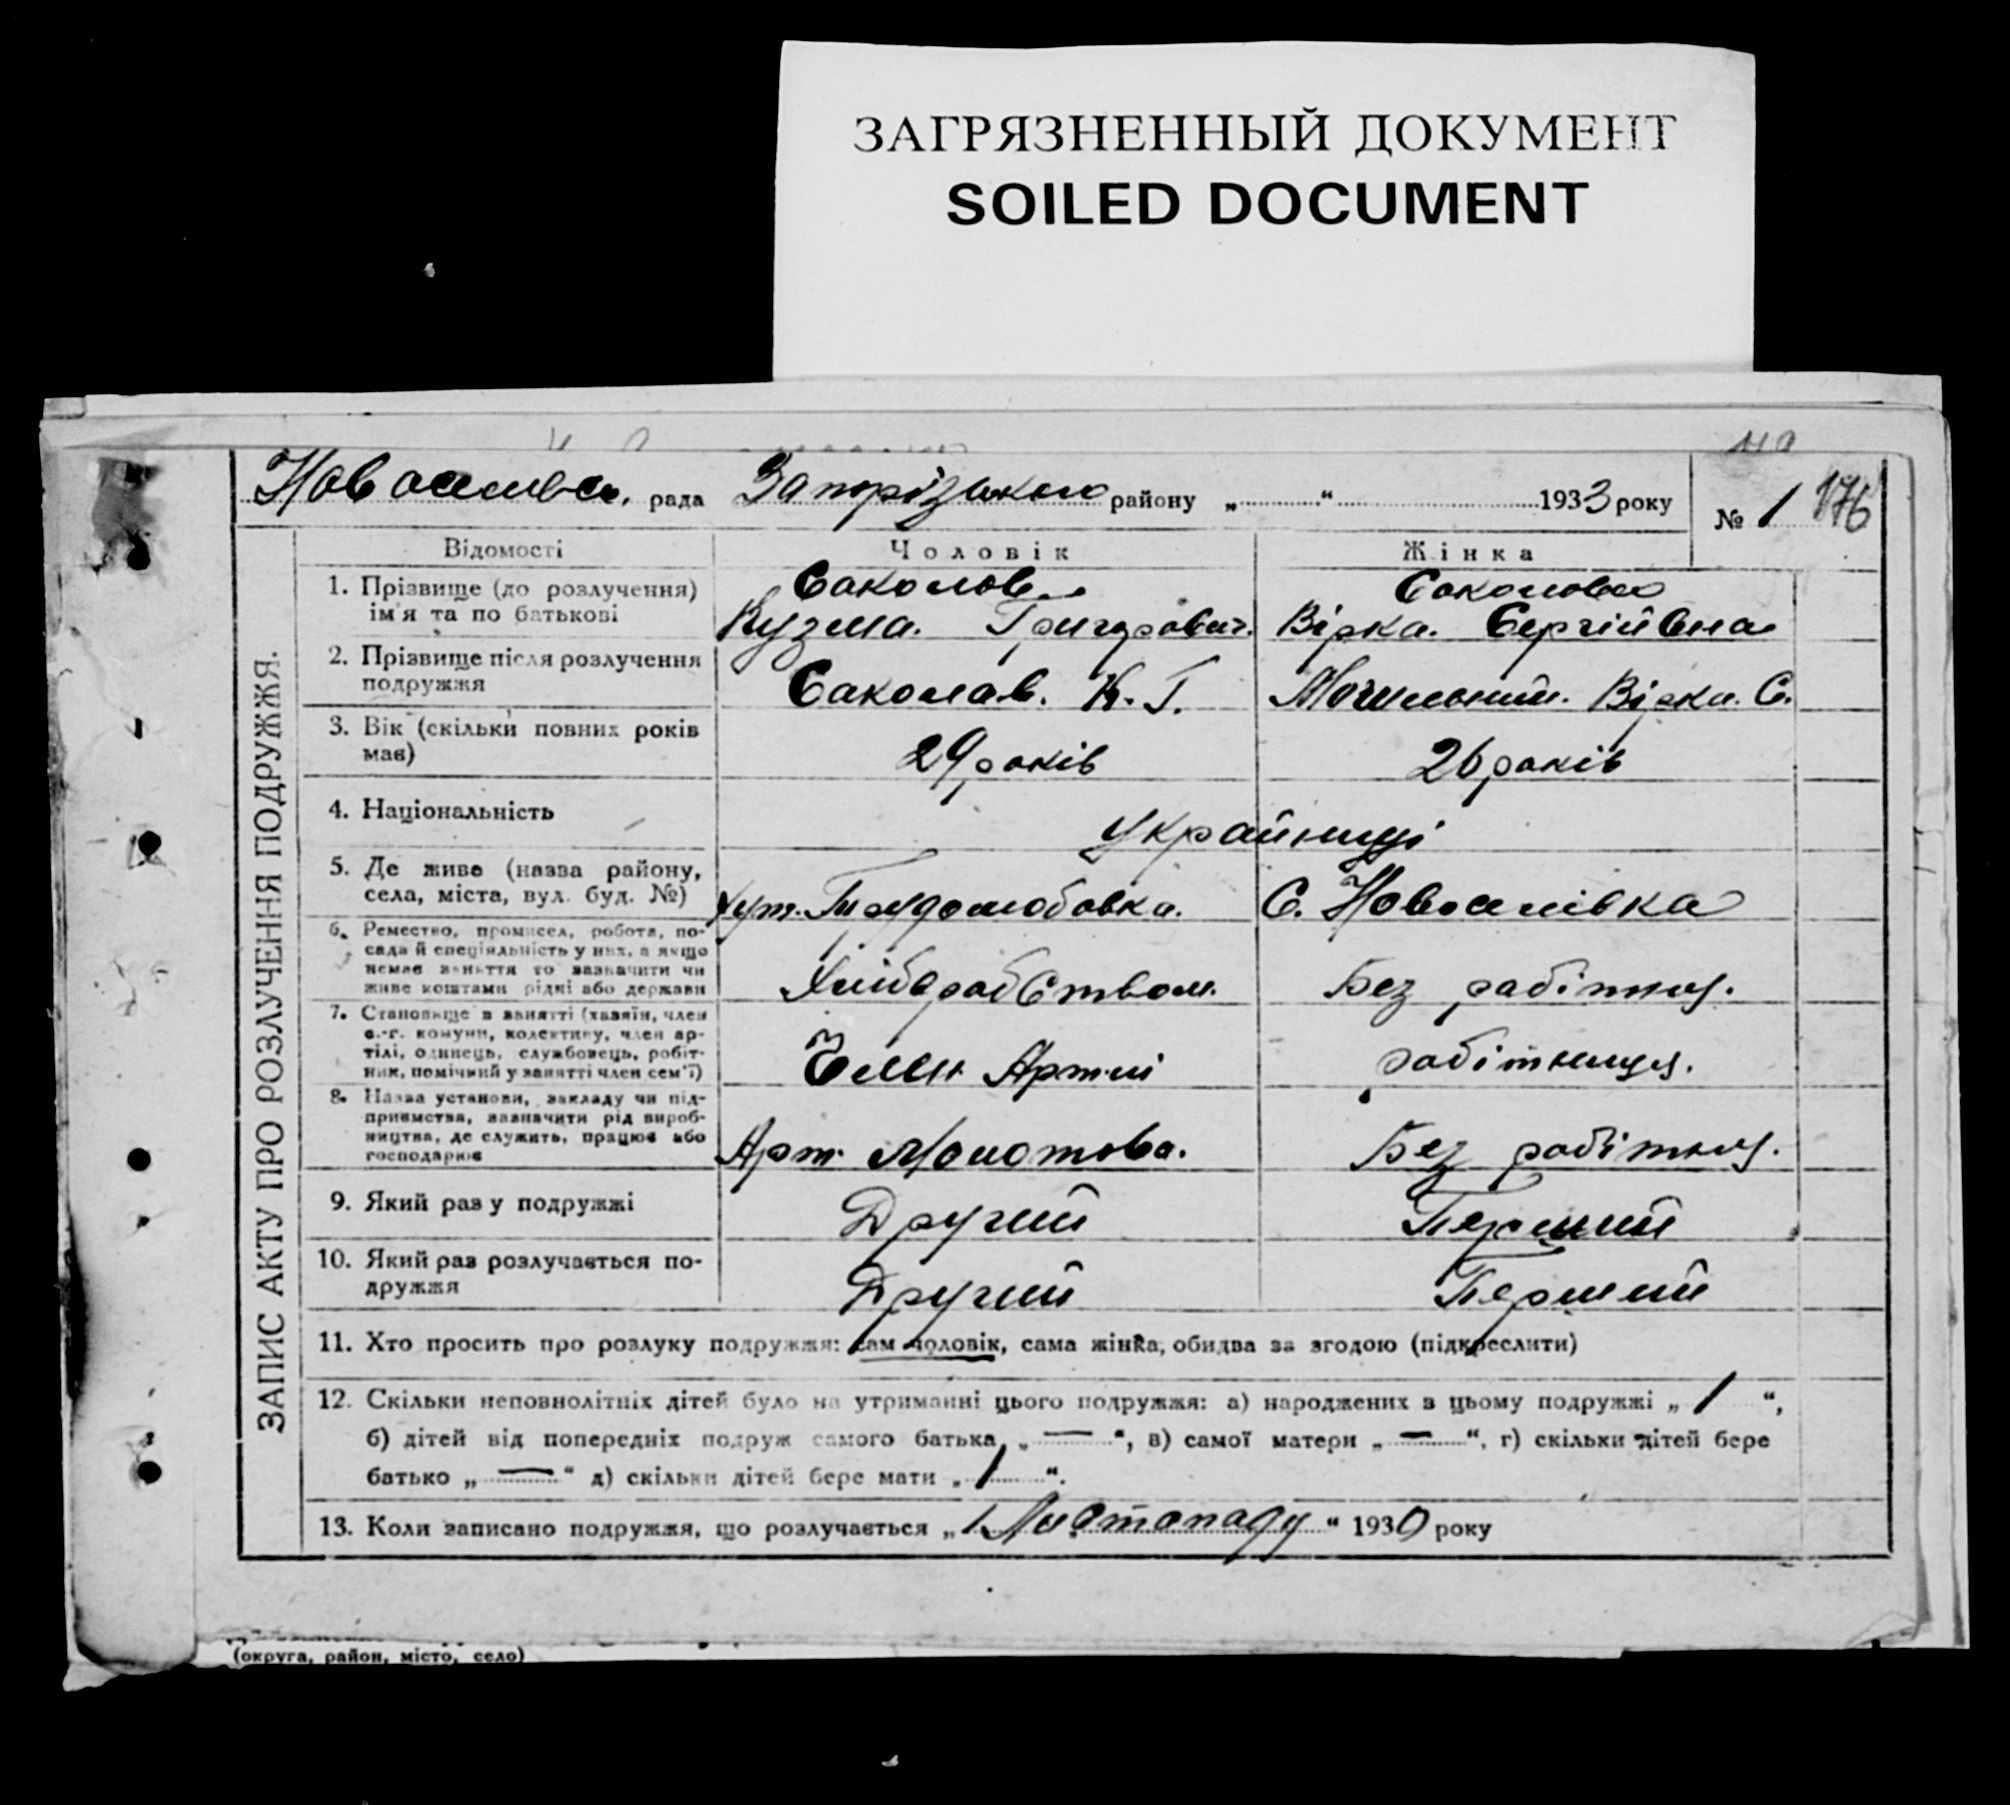 ЗАГРЯЗНЕННЫЙ ДОКУМЕНТ
SOILED DOCUMENT
рада Запрізького району „ “ 1933 року № 1 176
ЗАПИС АКТУ ПРО РОЗЛУЧЕННЯ ПОДРУЖЖЯ.
Відомості Чоловік Жінка
1. Прізвище (до розлучення) ім'я та по батькові
Саколов
Кузма. Григорович.
Саколова
Вірка. Сергіївна
2. Прізвище після розлучення подружжя
Саколав. К. Г.
Могильний. Вірка. С.
3. Вік (скільки повних років має)
29 років
26 років
4. Національність
Украйинці
5. Де живе (назва району, села, міста, вул. буд. №)
Хут. Трудолюбовка.
С. Новоселівка
6. Ремество, промисел, робота, посада й спеціяльність у них, а якщо немає заняття то зазначити чи живе коштами рідні або держави
Хлібаробством.
Без рабітня.
7. Становище в занятті (хазяїн, член с.-г. комуни, колективу, член артілі, одинець, службовець, робітник, помічний у занятті член сем'ї)
Член Артілі
рабітниця.
8. Назва установи, закладу чи підприємства, зазначити рід виробництва, де служить, працює або господарює
Арт. Молотова.
Без рабітня.
9. Який раз у подружжі
Другий
Перший
10. Який раз розлучається подружжя
Другий
Перший
11. Хто просить про розлуку подружжя: сам чоловік, сама жінка, обидва за згодою (підкреслити)
12. Скільки неповнолітніх дітей було на утриманні цього подружжя: а) народжених в цьому подружжі „ 1 “,
б) дітей від попередніх подруж самого батька „ — “, в) самої матери „ — “, г) скільки дітей бере
батько „ — “ д) скільки дітей бере мати „ 1 “.
13. Коли записано подружжя, що розлучається „ 1 Листопаду “ 1930 року
(округа, район, місто, село)